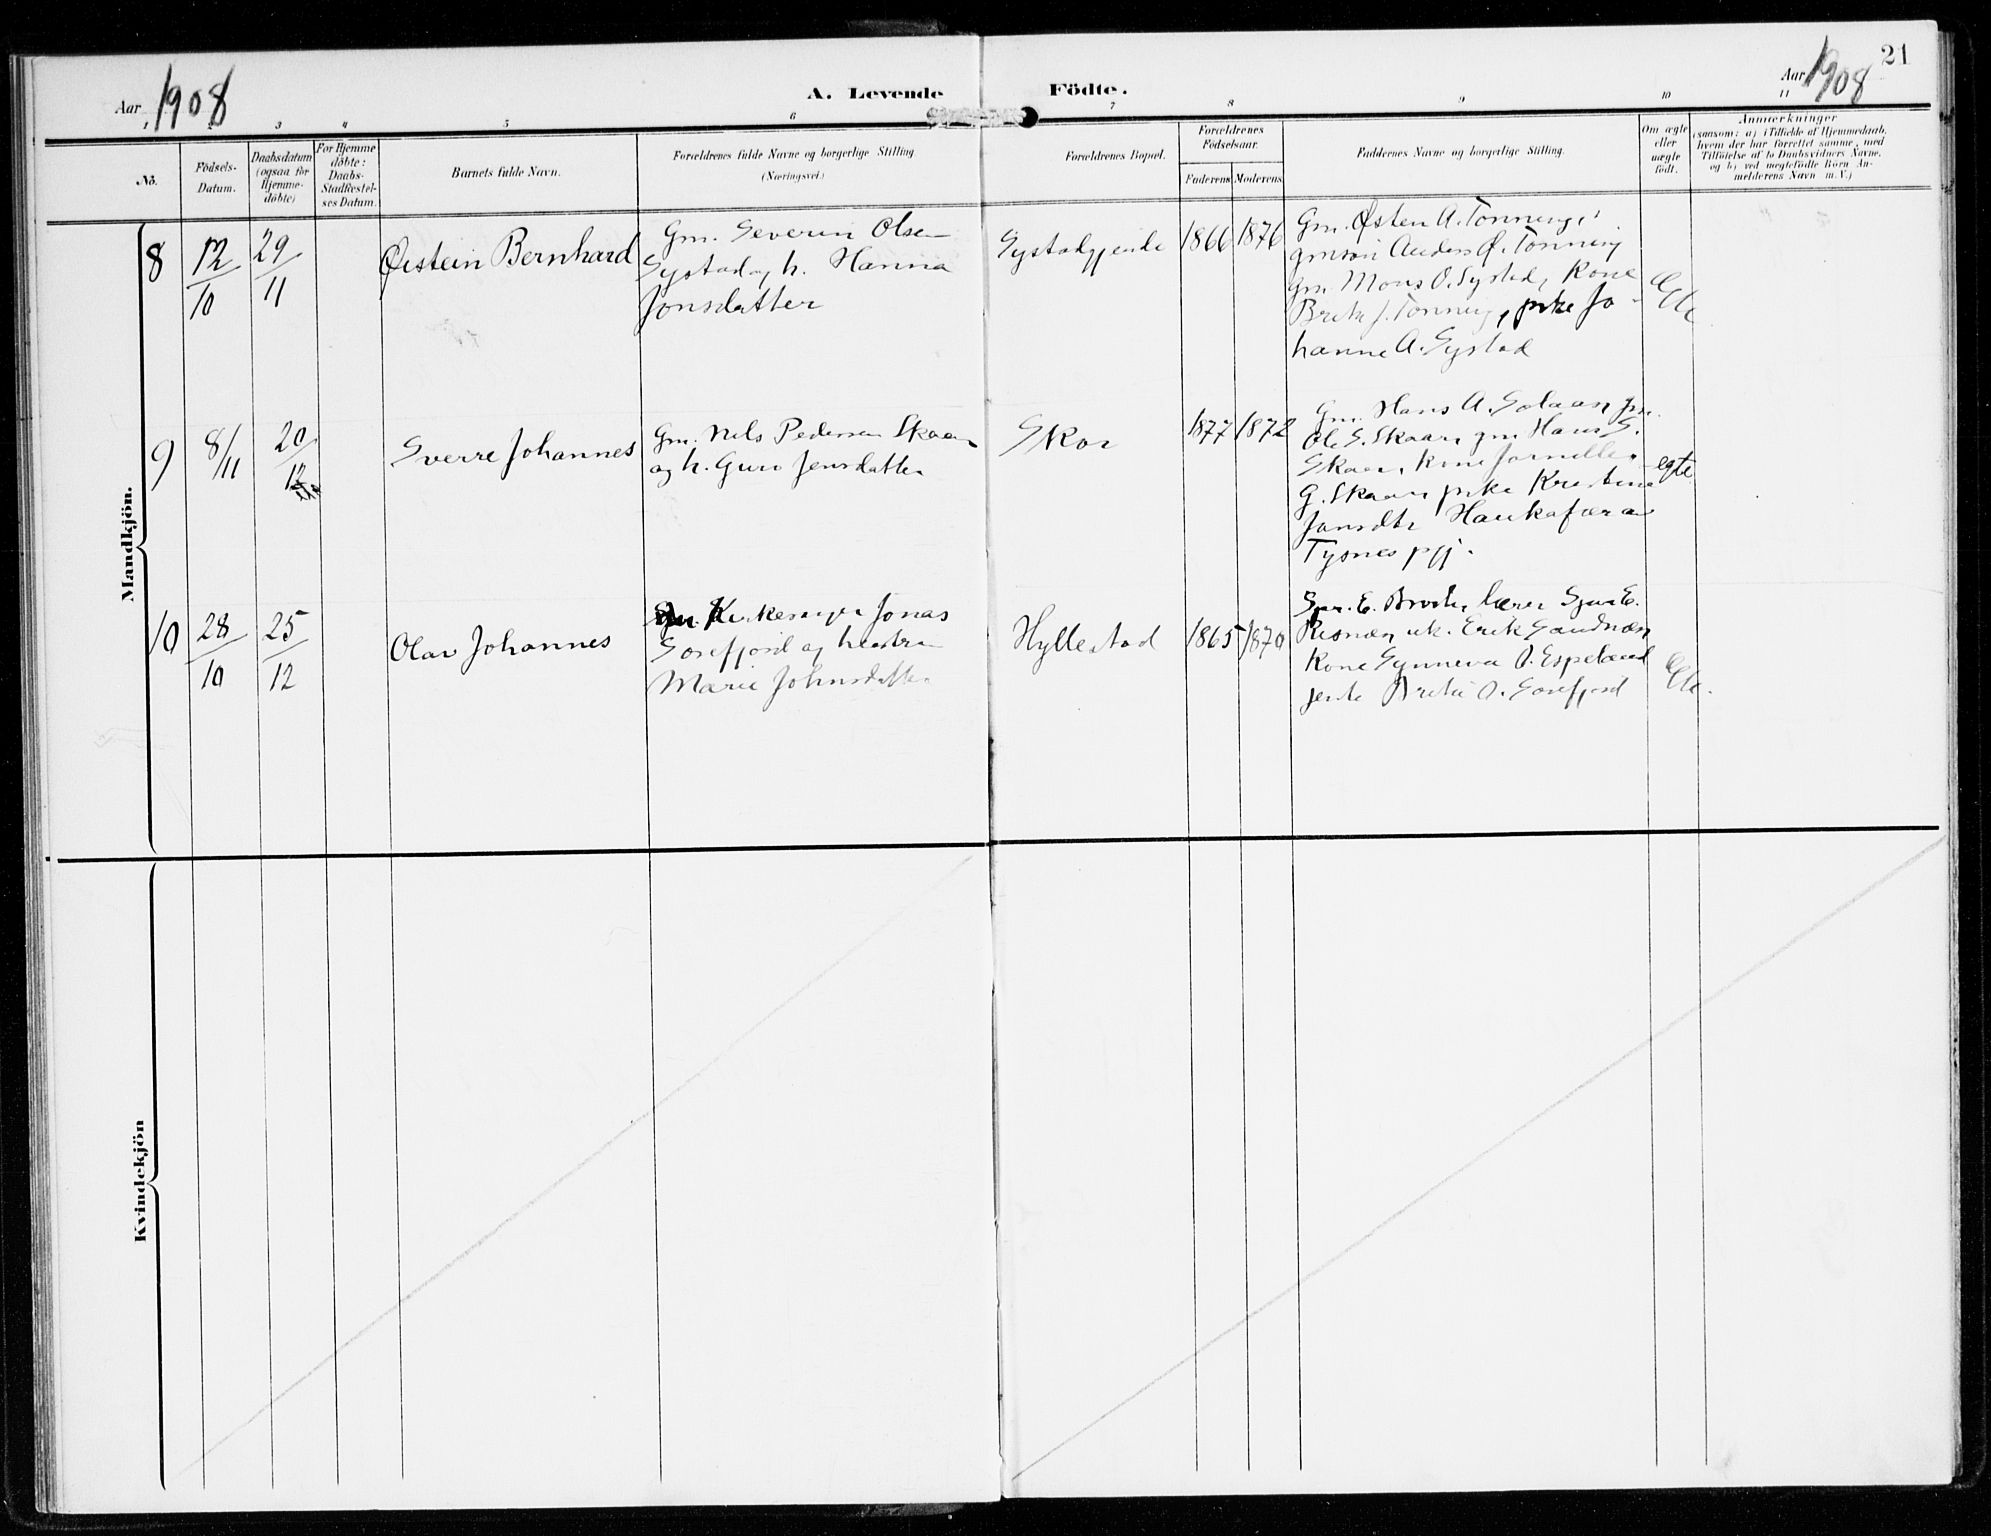 21
Aar 1908
A. Levende Födte.
Aar 1908
1 2 3 4 5 6 7 8 9 10 11
No.
Födsels-
Datum.
Daabsdatum
(ogsaa for
Hjemme-
döbte)
For Hjemme
döbte:
Daabs-
Stadfæstel-
ses Datum.
Barnets fulde Navn.
Forældrenes fulde Navne og borgerlige Stilling.
(Næringsvei.)
Forældrenes Bopæl.
Forældrenes
Födselsaar.
Faderens Moderens
Faddernes Navne og borgerlige Stilling.
Om ægte
eller
uægte
födt.
Anmærkninger
(saasom: a) i Tilfælde af Hjemmedaab,
hvem der har forrettet samme, med
Tilföielse af to Daabsvidners Navne,
og b) ved uegtefödte Börn An-
melderens Navn m. V.)
Mandkjön.
8
12/10
29/11
Øistein Bernhard
Gm. Severin Olsen
Systad og h. Hanna
Jonsdatter
1866 1876
Gm. Østen A. Tonning,
gmsön Anders Ø. Tonning
gm. Mons O. Systad, Kone
Brite J. Tonning, pike Jo-
hanne A. Systad
Ægte
9
8/11
20/12
Sverre Johannes
Gm. Nils Pedersen Skaar
og h. Guro Jensdatter
Skor
1877 1872
Gm. Hans A.
Ole S. Skaar, gm Hans S.
Skaar, kone
G. Skaar pike
Tysnes pgj.
egte
10
28/10
25/12
Olav Johannes
Kirkesanger Jonas
Sörefjord og hustru
Marie Johnsdatter
Hyllestad
1865 1870
E. lærer E.
Risnæs uk. Erik Sandnæs
Kone Synneva O. Espeland
jente Brita O. Sörefjord
Ægte.
Kvindekjön